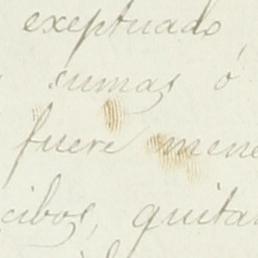 exeptuado,
sumas ó
fuere mene
cibos, quitar